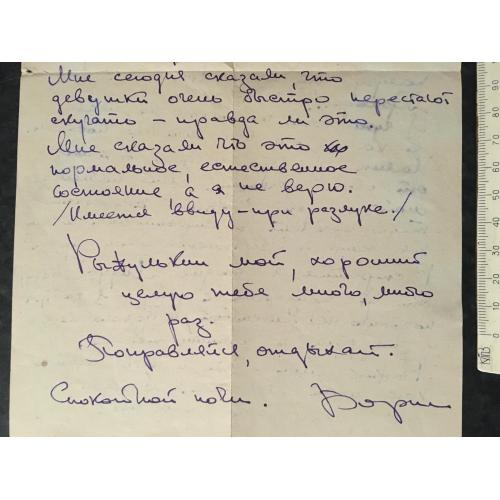 Мне сегодня сказали, что
девушки очень быстро перестают
скучать – правда ли это.
Мне сказали что это
нормальное, естественное
состояние а я не верю.
/Имеется ввиду – при разлуке./
Рыжулькин мой, хороший
целую тебя много, много
раз.
Поправляйся, отдыхай.
Спокойной ночи. Борис
90
80
70
60
50
40
30
20
10
0